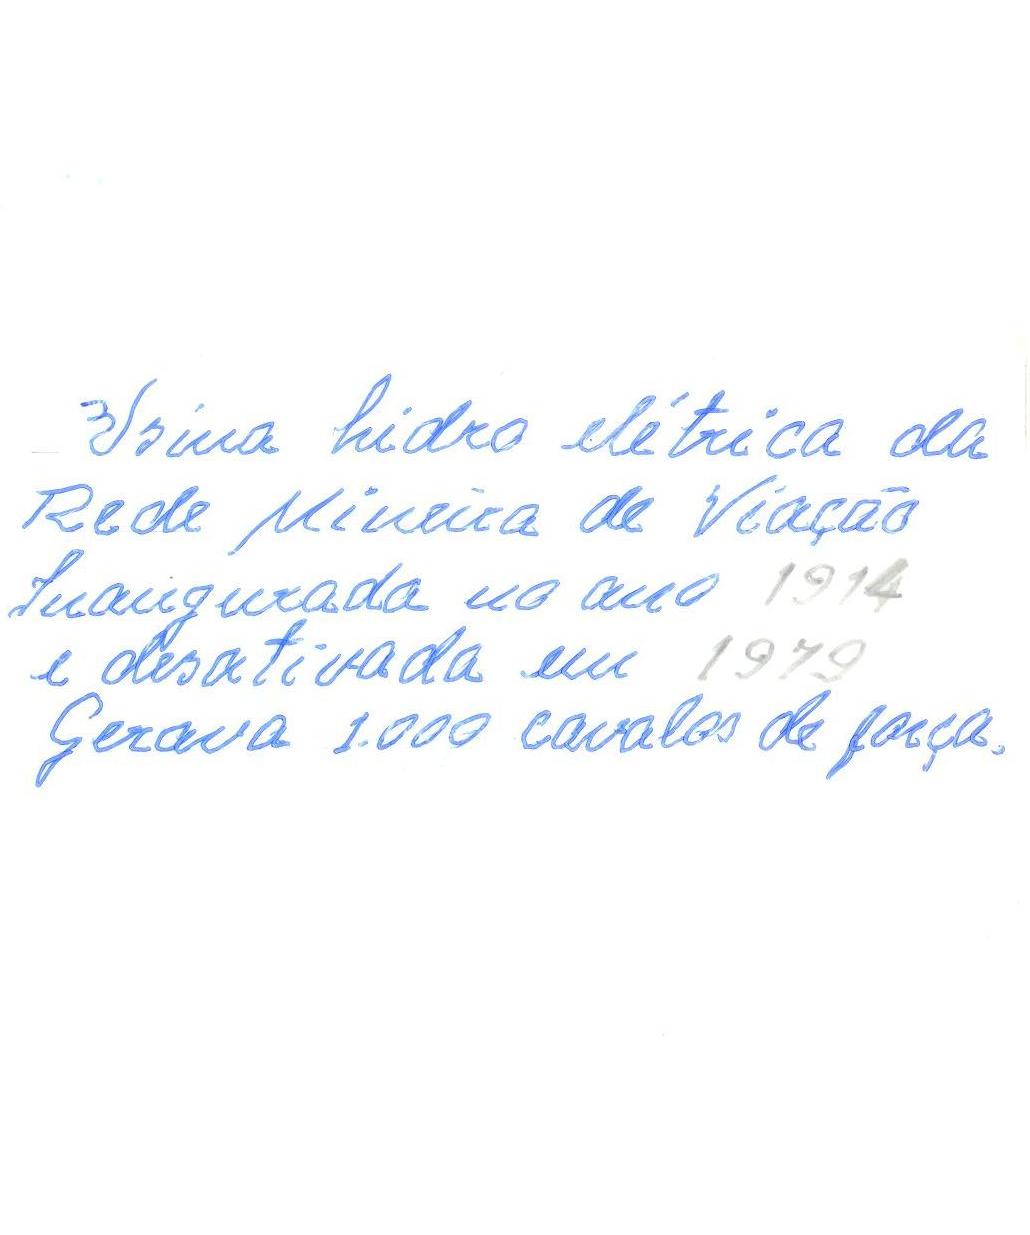 Usina hidro elétrica da
Rede Mineira de Viação
Inaugurada no ano 1914
e desativada em 1979
Gerava 1.000 cavalos de força.